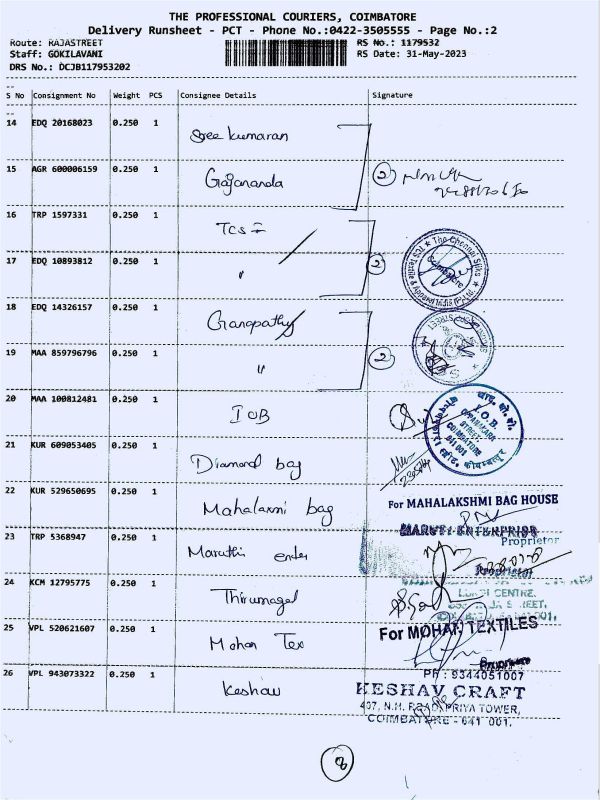 THE PROFESSIONAL COURIERS, COIMBATORE
Delivery Runsheet - PCT - Phone No.:0422-3505555 - Page No.:2
Route: RAJASTREET RS No.: 1179532
Staff: GOKILAVANI RS Date: 31-May-2023
DRS No.: DCJB117953202
S No Consignment No Weight PCS Consignee Details Signature
14 EDQ 20168023 0.250 1 Sree kumaran
15 AGR 600006159 0.250 1 Gajananda 2
16 TRP 1597331 0.250 1 TCS
17 EDQ 10893812 0.250 1 " 2
The Chennai Silks
Coimbatore
18 EDQ 14326157 0.250 1 Ganapathy
19 MAA 859796796 0.250 1 " 2
20 MAA 100812481 0.250 1 IOB
I.O.B.
OPPANAKARA
STREET,
COIMBATORE
641 001
21 KUR 609053405 0.250 1 Diamond bag
22 KUR 529650695 0.250 1 Mahalaxmi bag
For MAHALAKSHMI BAG HOUSE
MARUTI ENTERPRISE
Proprietor
23 TRP 5368947 0.250 1 Maruthi enter
Proprietor
24 KCM 12795775 0.250 1 Thirumagal
CENTRE.
25 VPL 520621607 0.250 1 Mohan Tex
For MOHAN TEXTILES
Proprietor
26 VPL 943073322 0.250 1 Keshav
PH : 9344051007
KESHAV CRAFT
407, N.H. ROAD, PRIYA TOWER,
COIMBATORE - 641 001.
8